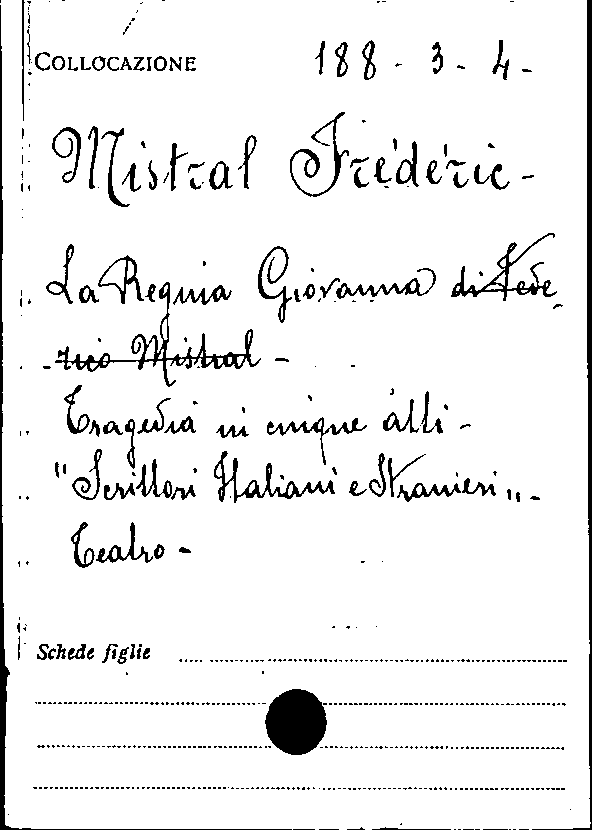 COLLOCAZIONE 188 - 3 - 4 -
Mistral Frédéric -
La Regina Giovanna di Fede-
rico Mistral -
Tragedia in cinque atti -
"Scrittori Italiani e Stranieri„ -
Teatro -
Schede figlie